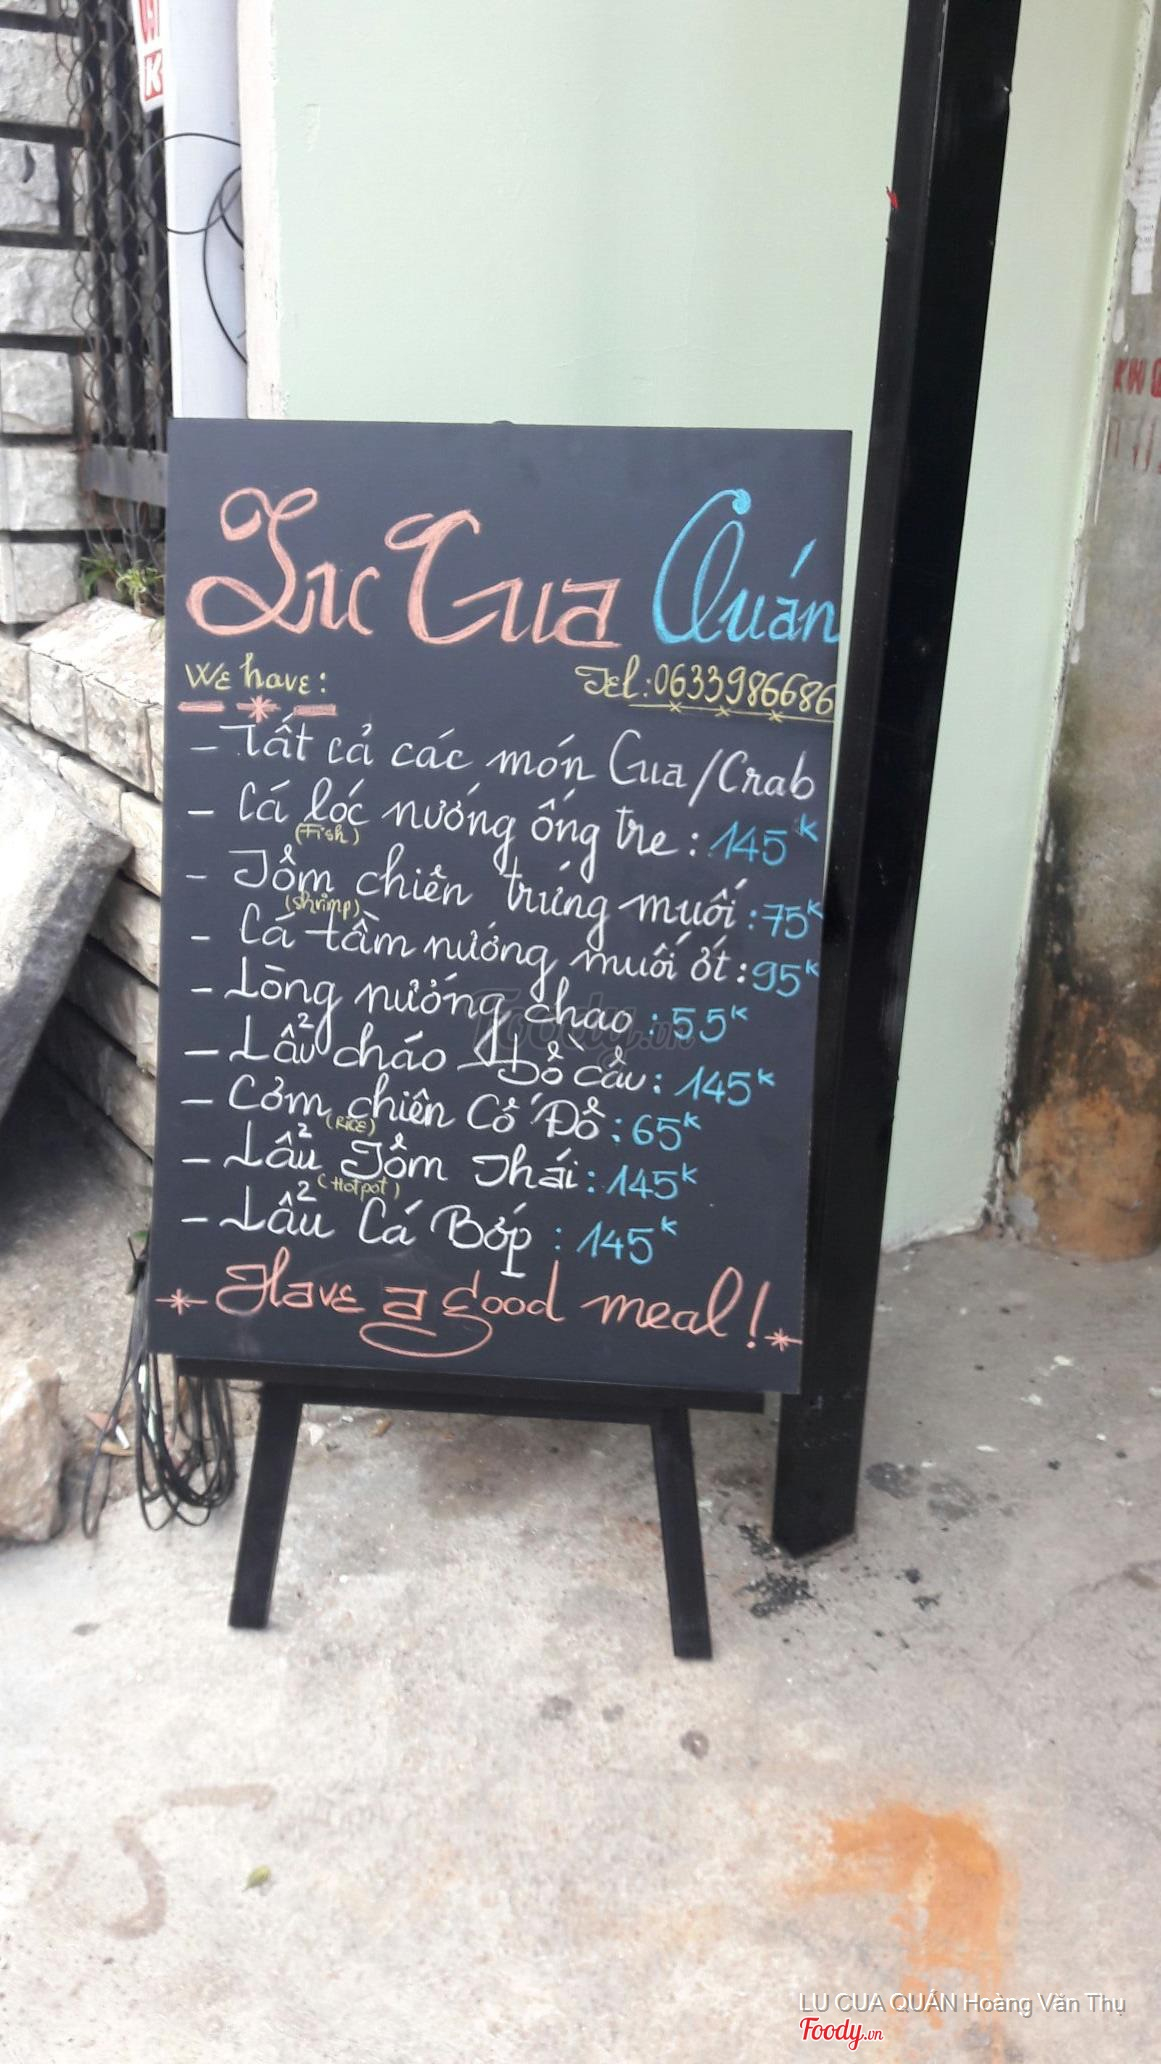 K
Lu Cua Quán
We have:
Tel: 0633986686
- Tất cả các món Cua/Crab
- Cá lóc nướng ống tre: 145k
(Fish)
- Tôm chiên trứng muối: 75k
(Shrimp)
- Cá tầm nướng muối ớt: 95k
- Lòng nướng chao: 55k
- Lẩu cháo Bồ câu: 145k
- Cơm chiên Cố Đô: 65k
(Rice)
- Lẩu Tôm Thái: 145k
(Hotpot)
- Lẩu Cá Bớp: 145k
Have a good meal!
Foody.vn
LU CUA QUÁN Hoàng Văn Thụ
Foody.vn